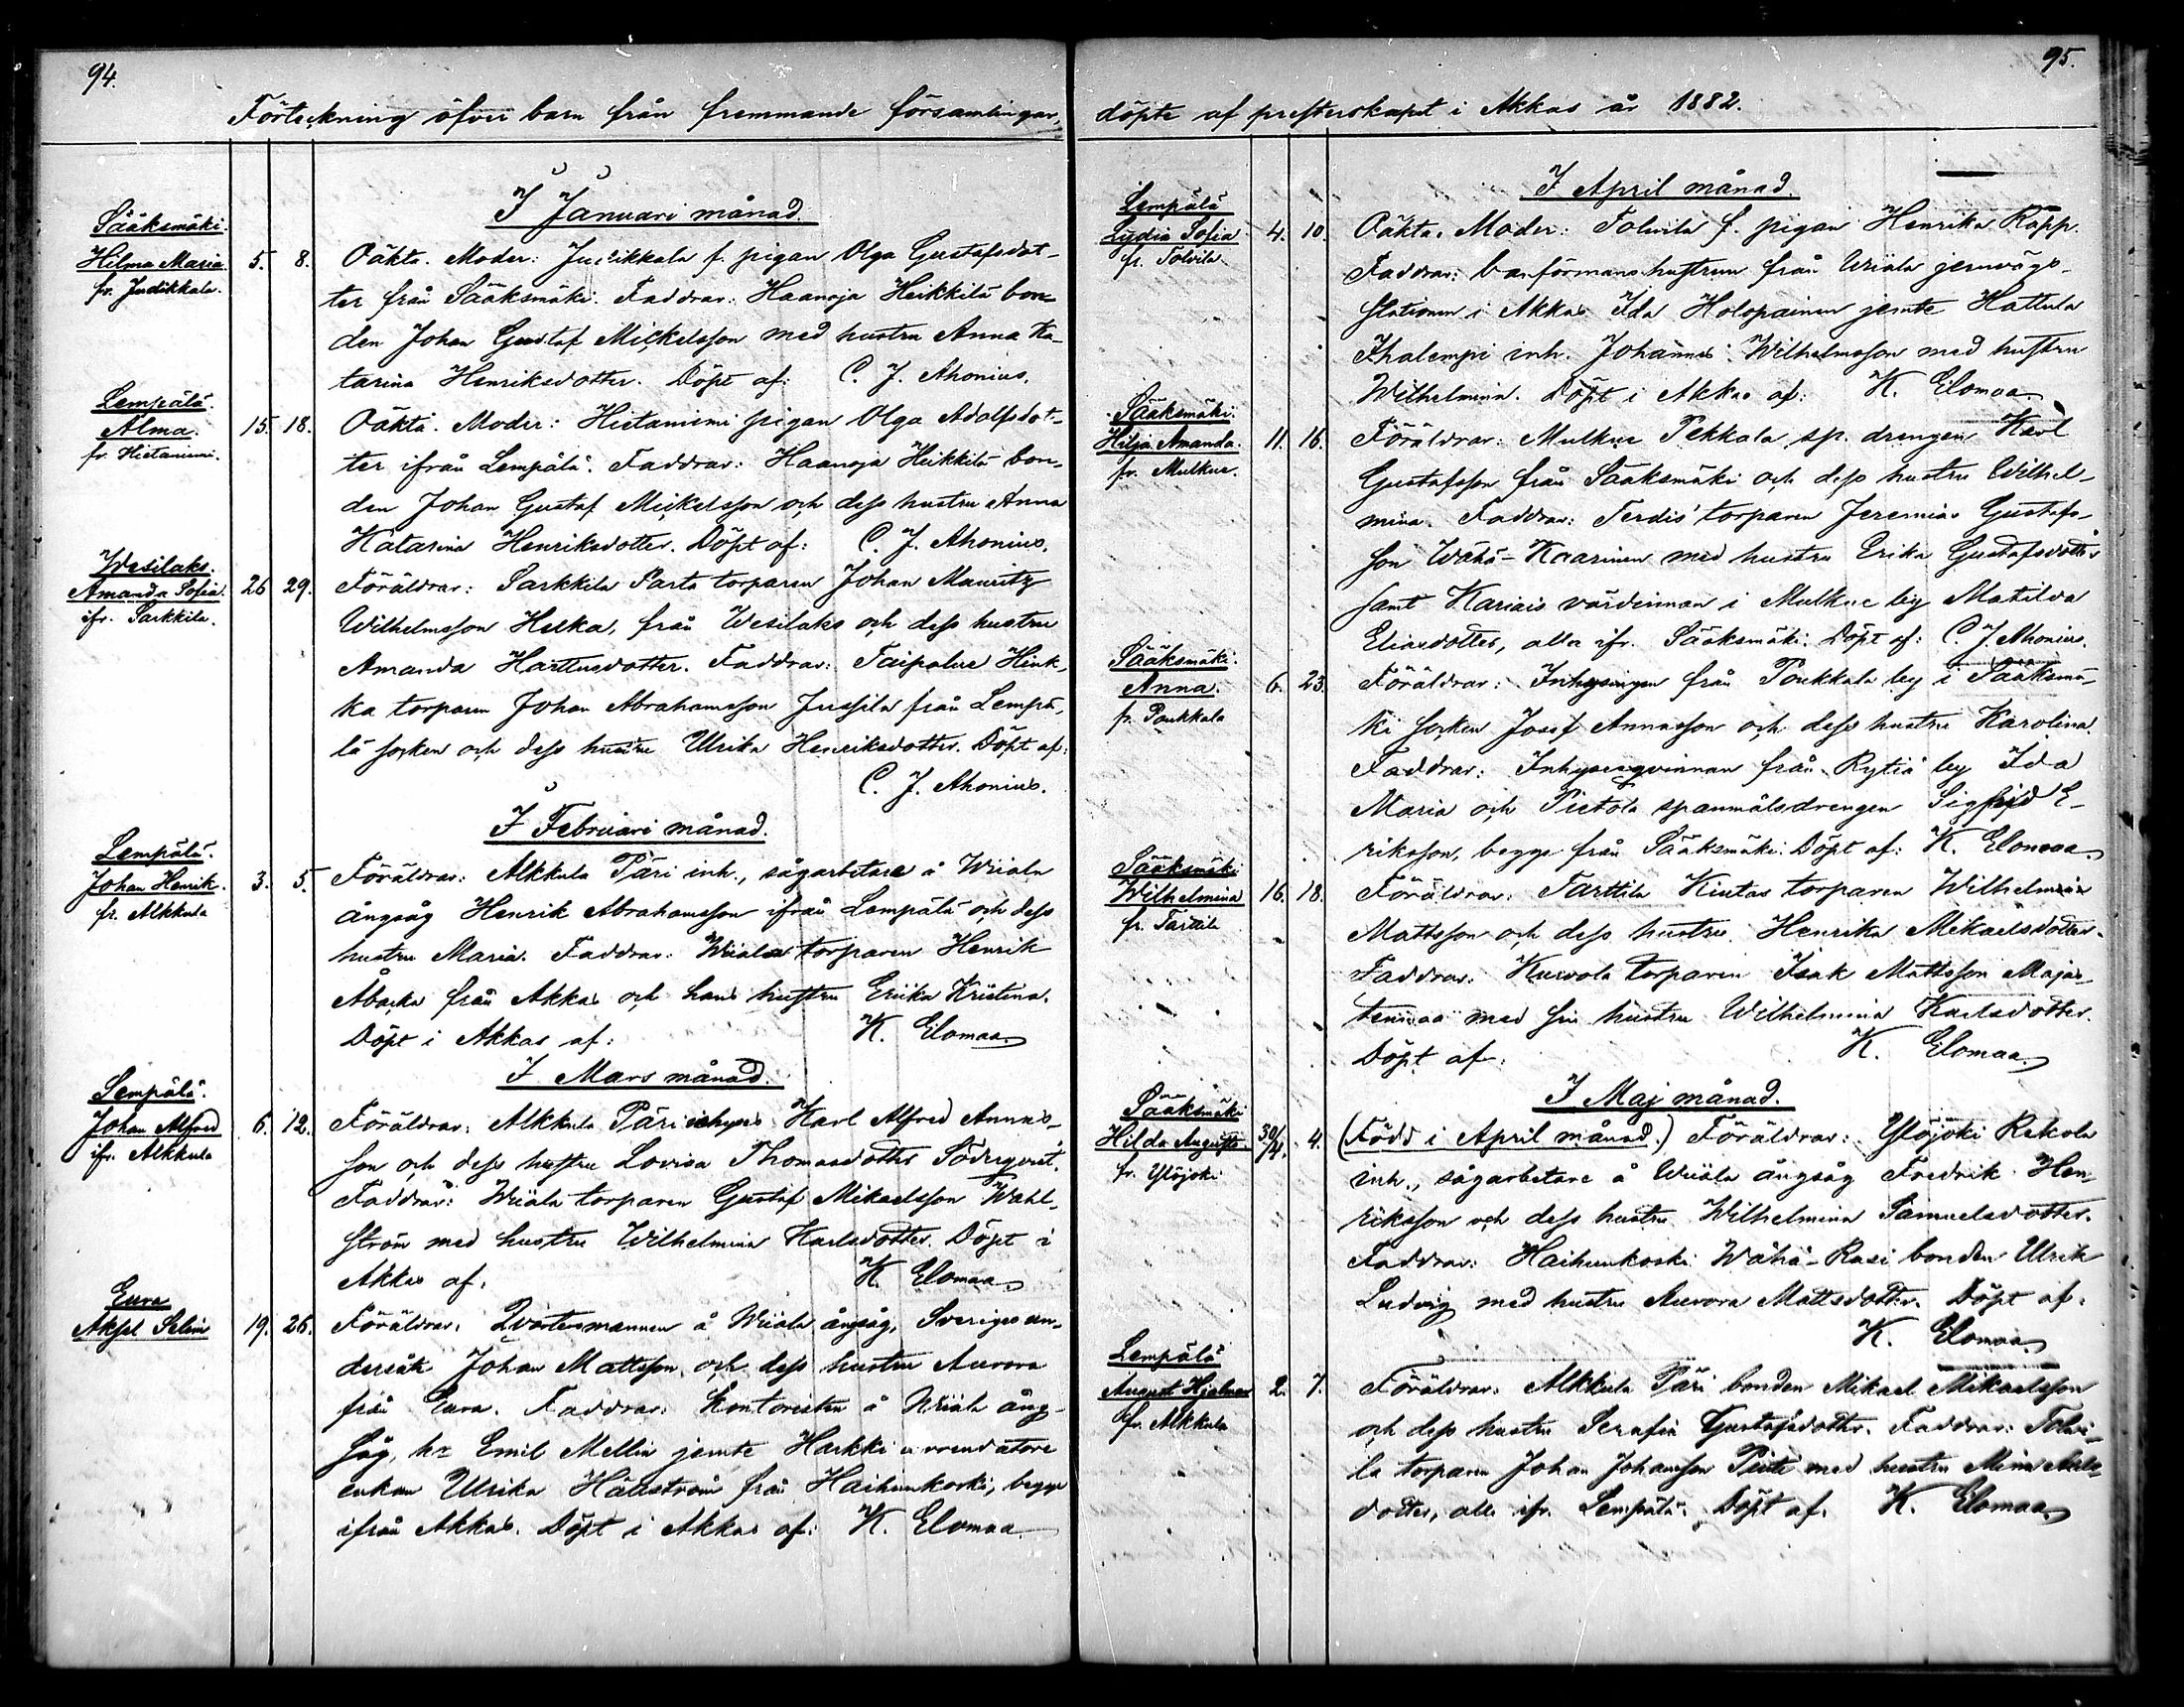 94.
Förteckning öfver barn från fremmande församlingar,
I Januari månad.
Sääksmäki.
Hilma Maria. 5. 8. Oäkta. Moder: Judikkala f. pigan Olga Gustafsdot-
fr. Judikkala.
ter från Sääksmäki. Faddrar: Haanoja Heikkilä bon-
den Johan Gustaf Mickelsson med hustru Anna Ka-
tarina Henriksdotter. Döpt af: C. J. Ahonius.
Lempälä.
Alma. 15. 18. Oäkta. Moder: Hietaniemi pigan Olga Adolfsdot-
fr. Hietaniemi.
ter ifrån Lempälä. Faddrar: Haanoja Heikkilä bon-
den Johan Gustaf Mickelsson och dess hustru Anna
Katarina Henriksdotter. Döpt af: C. J. Ahonius.
Wesilaks.
Amanda Sofia. 26 29. Föräldrar: Sarkkila Parta torparen Johan Mauritz
ifr. Sarkkila.
Wilhelmsson Helka, från Wesilaks och dess hustru
Amanda Harttusdotter. Faddrar: Taipalus Hink-
ka torparen Johan Abrahamsson Jussila från Lempä-
lä socken och dess hustru Ulrika Henriksdotter. Döpt af:
C. J. Ahonius.
I Februari månad.
Lempälä.
Johan Henrik. 3. 5. Föräldrar: Alkkula Päri inh., sågarbetare å Wiiala
fr. Alkkula
ångsåg Henrik Abrahamsson ifrån Lempälä och dess
hustru Maria. Faddrar: Wiiala torparen Henrik
Åbacka från Akkas och hans hustru Erika Kristina.
Döpt i Akkas af: K. Elomaa
I Mars månad.
Lempälä.
Johan Alfred 6. 12. Föräldrar: Alkkula Päri inhyses Karl Alfred Annas-
ifr. Alkkula
son och dess hustru Lovisa Thomasdotter Söderqvist.
Faddrar: Wiiala torparen Gustaf Mikaelsson Wahl-
ström med hustru Wilhelmina Karlsdotter. Döpt i
Akkas af: K. Elomaa
Eura
Aksel Selim 19. 26. Föräldrar: Qvartersmannen å Wiiala ångsåg, Sveriges un-
dersåte Johan Mattsson, och dess hustru Aurora
från Eura. Faddrar: Kontoristen å Wiiala ång-
såg, hr Emil Mellin jemte Harkki arrendators
enkan Ulrika Häuström från Haihunkoski, begge
ifrån Akkas. Döpt i Akkas af: K. Elomaa
95.
döpte af presterskapet i Akkas år 1882.
I April månad.
Lempälä
Lydia Sofia 4. 10. Oäkta. Moder: Tolvila f. pigan Henrika Ropp.
fr. Tolvila.
Faddrar: banförmans hustrun från Wiiala jernvägs-
stationen i Akkas Ida Holopainen jemte Hattula
Ihalempi inh. Johannes Wilhelmsson med hustru
Wilhelmina. Döpt i Akkas af: K. Elomaa
Sääksmäki.
Hilja Amanda. 11. 16. Föräldrar: Mulkue Pekkala sp. drengen Karl
fr. Mulkue.
Gustafsson från Sääksmäki och dess hustru Wilhel-
mina. Faddrar: Terdis torparen Jeremias Gustafs-
son Wähä-Kaarinen med hustru Erika Gustafsdotter
samt Kariais värdinnan i Mulkue by Matilda
Eliasdotter, alla ifr. Sääksmäki. Döpt af: C. J. Ahonius.
Sääksmäki.
Anna. 6. 23. Föräldrar: Inhysingen från Poukkala by i Sääksmä-
fr. Poukkala
ki socken Josef Annasson och dess hustru Karolina.
Faddrar: Inhysesqvinnan från Rytiä by Ida
Maria och Pietola spanmålsdrengen Sigfrid E-
riksson, begge från Sääksmäki. Döpt af: K. Elomaa
Sääksmäki
Wilhelmina 16. 18. Föräldrar: Tarttila Kiutas torparen Wilhelm
fr. Tarttila
Mattsson och dess hustru Henrika Mikaelsdotter.
Faddrar: Kurvola torparen Isak Mattsson Majas-
tenmaa med sin hustru Wilhelmina Karlsdotter.
Döpt af: K. Elomaa
I Maj månad.
Sääksmäki
Hilda Augusta. 30/4. 4. (Född i April månad.) Föräldrar: Ylöjoki Rekola
fr. Ylöjoki
inh., sågarbetare å Wiiala ångsåg Fredrik Hen-
riksson och dess hustru Wilhelmina Samuelsdotter.
Faddrar: Haihunkoski Wähä-Rasi bonden Ulrik
Ludvig med hustru Aurora Mattsdotter. Döpt af:
K. Elomaa
Lempälä
August Hjalmar 2. 7. Föräldrar: Alkkula Päri bonden Mikael Mikaelsson
fr. Alkkula
och dess hustru Serafia Gustafsdotter. Faddrar: Tolvi-
la torparen Johan Johansson Piite med hustru Mina
dotter, alla ifr. Lempälä. Döpt af: K. Elomaa